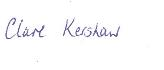 Clare Kershaw